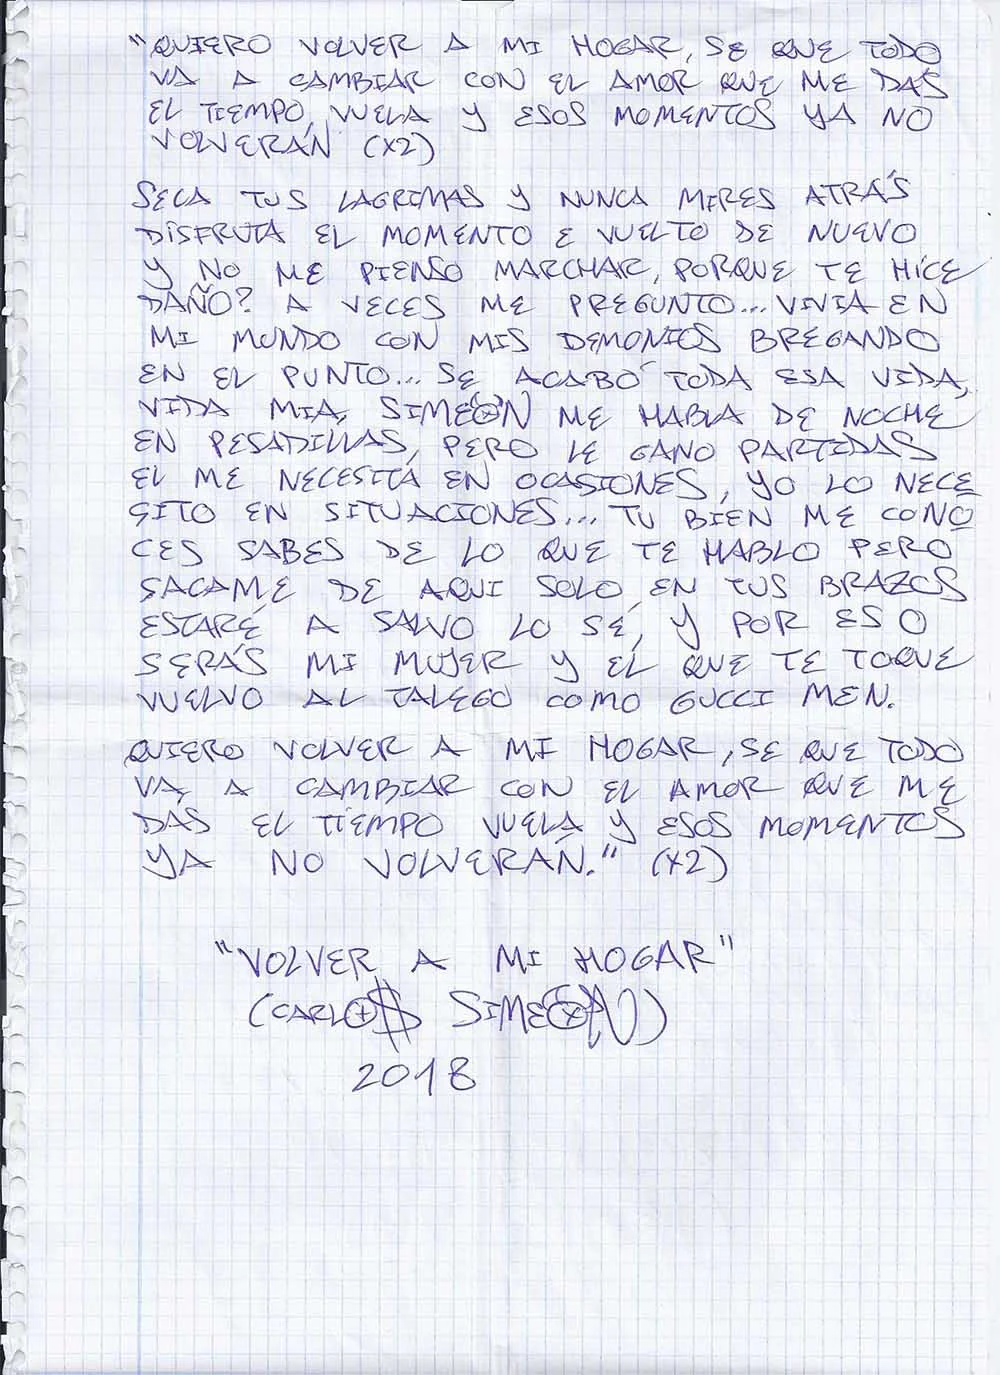 "QUIERO VOLVER A MI HOGAR, SE QUE TODO
VA A CAMBIAR CON EL AMOR QUE ME DAS
EL TIEMPO, VUELA Y ESOS MOMENTOS YA NO
VOLVERÁN (X2)
SECA TUS LAGRIMAS Y NUNCA MIRES ATRÁS
DISFRUTA EL MOMENTO E VUELTO DE NUEVO
Y NO ME PIENSO MARCHAR, PORQUE TE HICE
DAÑO? A VECES ME PREGUNTO... VIVIA EN
MI MUNDO CON MIS DEMONIOS BREGANDO
EN EL PUNTO... SE ACABÓ TODA ESA VIDA,
VIDA MIA, SIMEON ME HABLA DE NOCHE
EN PESADILLAS, PERO LE GANO PARTIDAS
EL ME NECESITA EN OCASIONES, YO LO NECE
SITO EN SITUACIONES... TU BIEN ME CONO
CES SABES DE LO QUE TE HABLO PERO
SACAME DE AQUI SOLO EN TUS BRAZOS
ESTARÉ A SALVO LO SÉ, Y POR ESO
SERÁS MI MUJER Y EL QUE TE TOQUE
VUELVO AL TALEGO COMO GUCCI MEN.
QUIERO VOLVER A MI HOGAR, SE QUE TODO
VA A CAMBIAR CON EL AMOR QUE ME
DAS EL TIEMPO VUELA Y ESOS MOMENTOS
YA NO VOLVERÁN." (X2)
"VOLVER A MI HOGAR"
(CARLO$ SIMEON)
2018